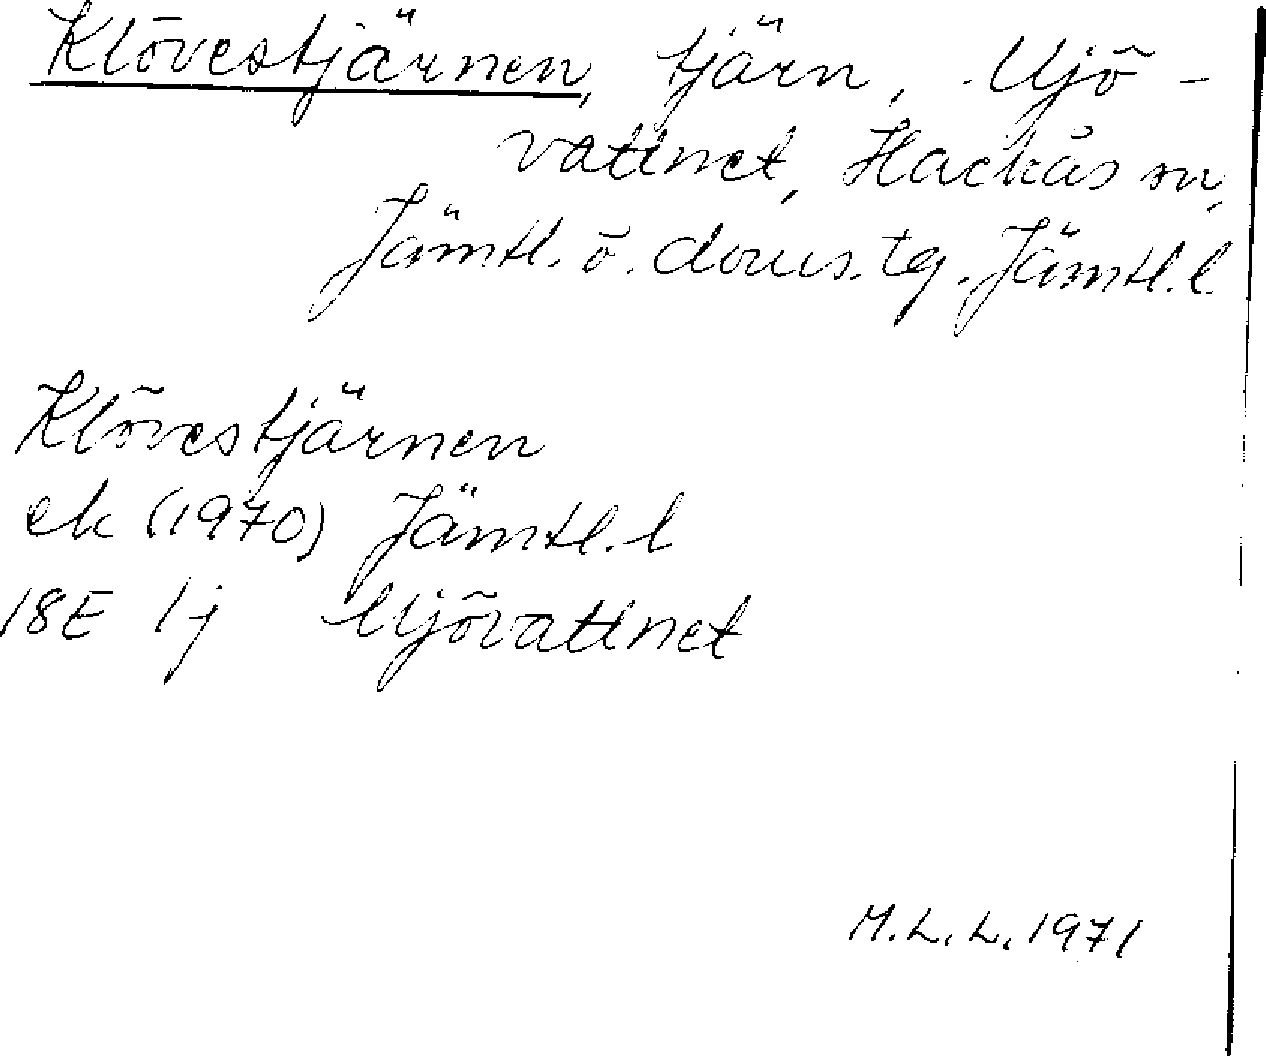 Klövestjärnen, tjärn, Mjö-
vattnet, Hackås sn,
Jämtl. ö. doms. tg. Jämtl. l.
Klövestjärnen
ek (1970) Jämtl. l
18E 1j Mjövattnet
M.L.L. 1971